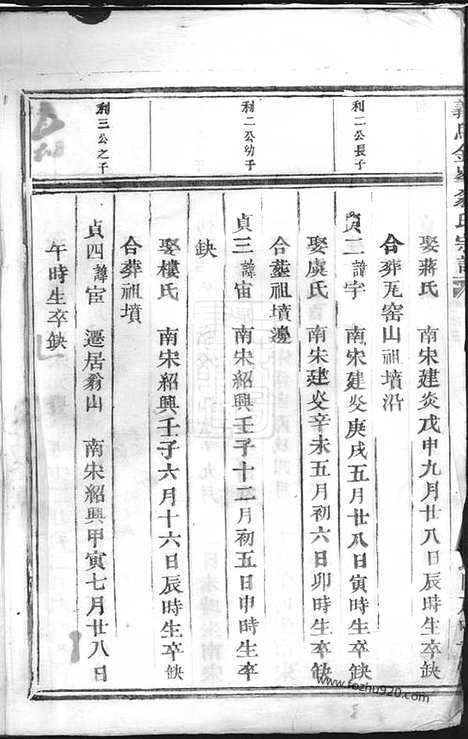 娶蔣氏 南宋建炎戊申九月廿八日辰時生卒缺
合葬瓦窑山祖墳沿
利二公長子
貞二諱宇 南宋建炎庚戌五月廿八日寅時生卒缺
娶虞氏 南宋建炎辛未五月初六日卯時生卒缺
合葬祖墳邊
利二公幼子
貞三諱宙 南宋紹興壬子十二月初五日申時生卒
缺
娶樓氏 南宋紹興壬子六月十六日辰時生卒缺
合葬祖墳
利三公之子
貞四諱宦 遷居翁山 南宋紹興甲寅七月廿八日
午時生卒缺
www.fozhu920.com